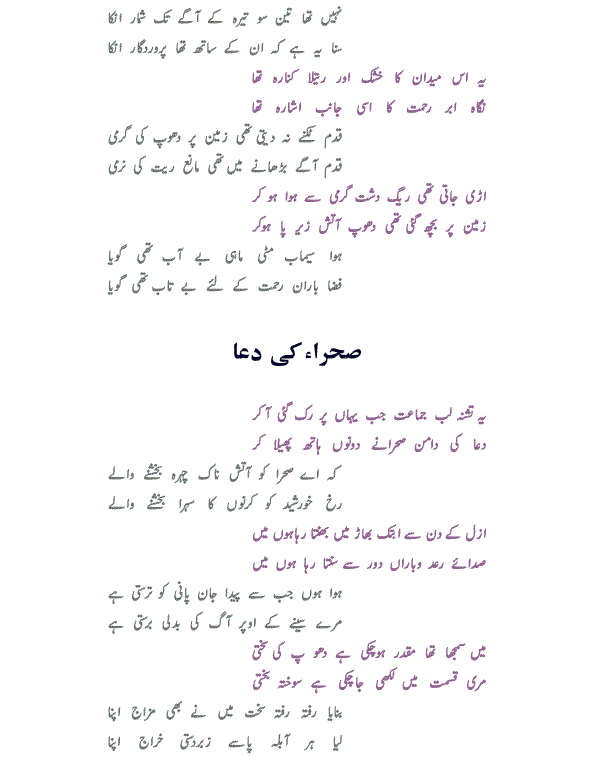 نہیں تھا تین سو تیرہ کے آگے تک شمار انکا
سنا یہ ہے کہ ان کے ساتھ تھا پروردگار انکا
یہ اس میدان کا خشک اور ریتلا کنارہ تھا
نگاہ ابر رحمت کا اسی جانب اشارہ تھا
قدم ٹکنے نہ دیتی تھی زمین پر دھوپ کی گرمی
قدم آگے بڑھانے میں تھی مانع ریت کی نرمی
اڑی جاتی تھی ریگ دشت گرمی سے ہوا ہو کر
زمین پر بچھ گئی تھی دھوپ آتش زیر پا ہوکر
ہوا سیماب مٹی ماہی بے آب تھی گویا
فضا باران رحمت کے لئے بے تاب تھی گویا
صحراء کی دعا
یہ تشنہ لب جماعت جب یہاں پر رک گئی آکر
دعا کی دامن صحرانے دونوں ہاتھ پھیلا کر
کہ اے صحرا کو آتش ناک چہرہ بخشنے والے
رخ خورشید کو کرنوں کا سہرا بخشنے والے
ازل کے دن سے ابتک بھاڑ میں بھنتا رہاہوں میں
صدائے رعد وباراں دور سے سنتا رہا ہوں میں
ہوا ہوں جب سے پیدا جان پانی کو ترستی ہے
مرے سینے کے اوپر آگ کی بدلی برستی ہے
میں سمجھا تھا مقدر ہوچکی ہے دھو پ کی سختی
مری قسمت میں لکھی جاچکی ہے سوختہ بختی
بنایا رفتہ رفتہ سخت میں نے بھی مزاج اپنا
لیا ہر آبلہ پاسے زبردستی خراج اپنا